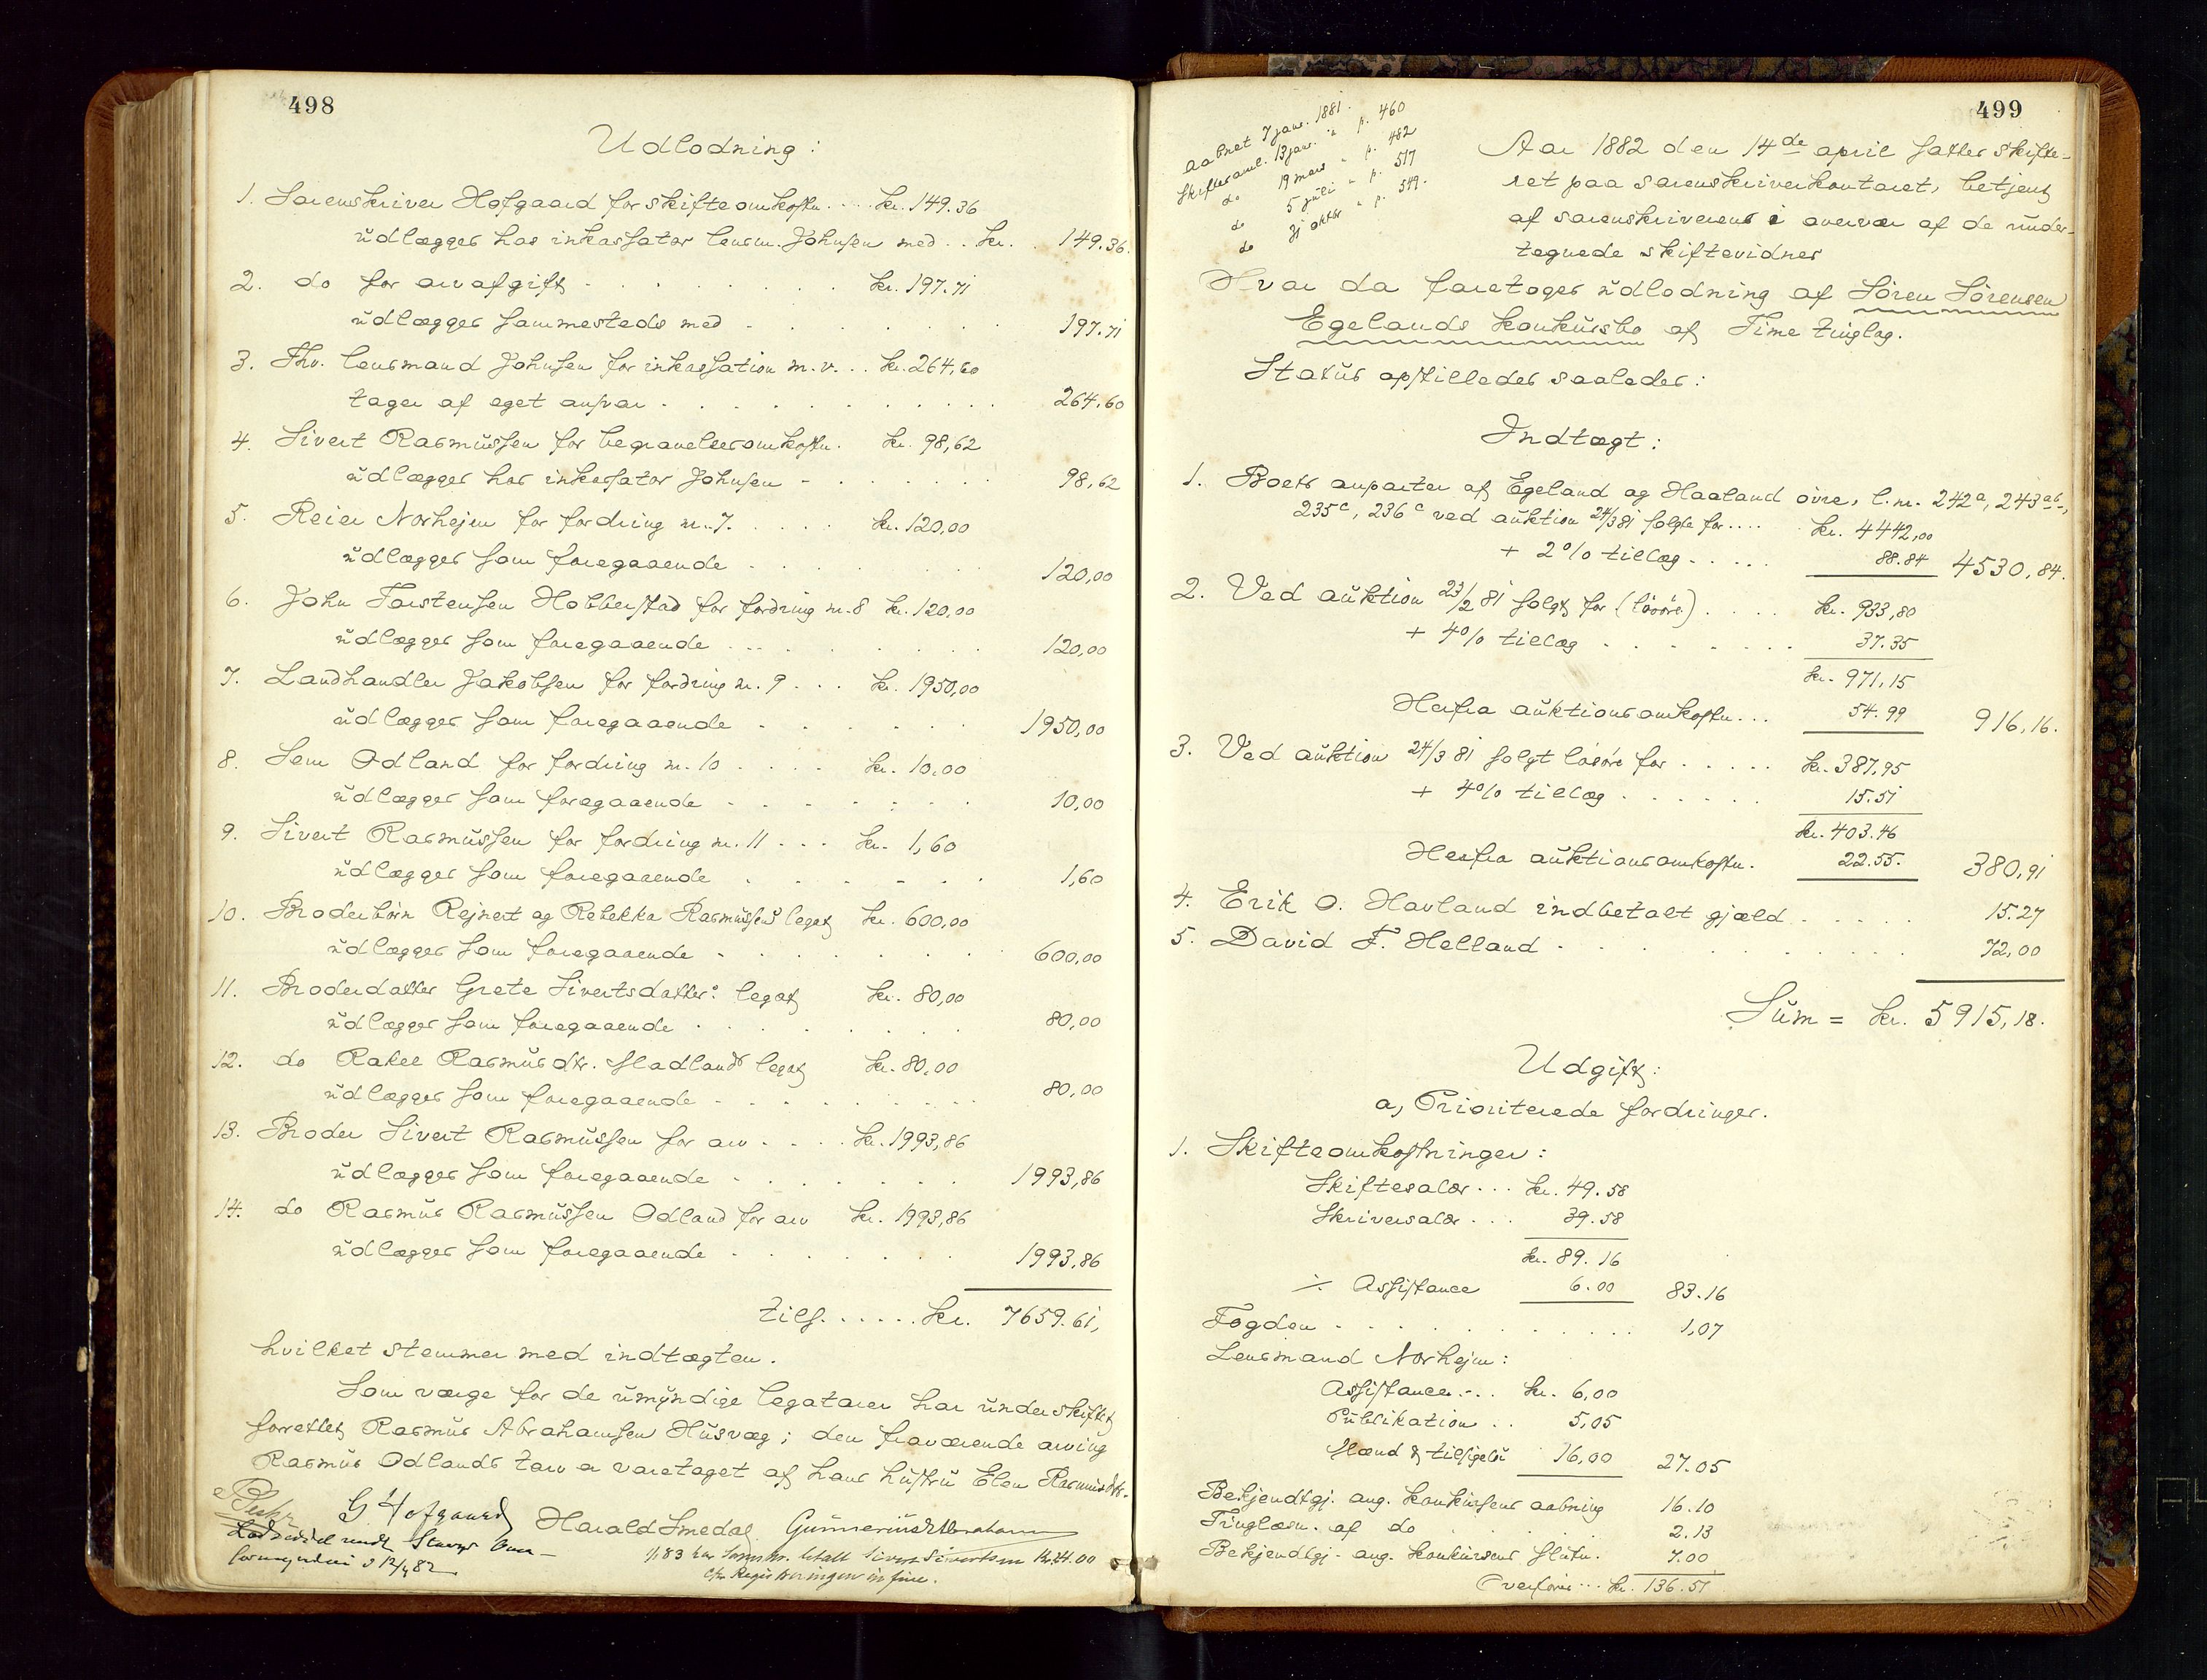 498
Udlodning:
1. Sorenskriver Hofgaard for skifteomkostn. . . . kr. 149.36
udlægges hos inkassator lensm. Johnsen med . . kr. . 149.36.
2. do for arvafgift . . . . . . . kr. 197.71
udlægges sammesteds med . . . . . . . 197.71
3. Thv. lensmand Johnsen for inkassation m. v. . . kr. 264,60
tager af eget ansvar . . . . . . . . . 264.60
4. Sivert Rasmussen for begravelsesomkostn. kr. 98,62
udlægges hos inkassator Johnsen - . . . . . 98,62
5. Reier Norhejm for fordring nr. 7. . . . . kr. 120,00
udlægges som foregaaende . . . . . . 120,00
6. John Torstensen Hobberstad for fordring nr. 8 kr. 120,00
udlægges som foregaaende . . . . . . . 120,00
7. Landhandler Jakobsen for fordring nr. 9 . . . kr. 1950,00
udlægges som foregaaende . . . . . . 1950,00
8. Sem Odland for fordring nr. 10 . . . . kr. 10,00
udlægges som foregaaende . . . . . . . 10,00
9. Sivert Rasmussen for fordring nr. 11 . . . kr. 1,60
udlægges som foregaaende . . . . . . 1,60
10. Broderbörn Rejnert og Rebekka Rasmussens legat kr. 600,00
udlægges som foregaaende . . . . . . . 600,00
11. Broderdatter Grete Sivertsdatters legat kr. 80,00
udlægges som foregaaende . . . . . . . 80,00
12. do Rakel Rasmusdtr. Sladlands legat kr. 80,00
udlægges som foregaaende - . . . . . . . 80,00
13. Broder Sivert Rasmussen for arv . . . . kr. 1993,86
udlægges som foregaaende . . . . . . . 1993,86
14. do Rasmus Rasmussen Odland for arv kr. 1993,86
udlægges som foregaaende . . . . . . . 1993,86
tils. . . . . . . kr. 7659.61,
hvilket stemmer med indtægten.
Som værge for de umyndige legatarer har under skiftet
forrettet Rasmus Abrahamsen Husvæg; den fraværende arving
Rasmus Odlands tarv er varetaget af hans hustru Elen Rasmusdtr.
G Hofgaard Harald Smedal Gunnerius Abrahams
1/1 83 har betalt Sivert Sivertsen kr. 24.00
cfr. Registreringen in fine.
12/4 82
499
Aabnet 7 janr. 1881. p. 460
Skiftesaml. 13 janr. " p. 482
do 19 mars " p. 517
do 5 juli " p. 549.
do oktbr " p.
Aar 1882 den 14de april sattes skifte-
ret paa sorenskriverkontoret, betjent
af sorenskriveren i overvær af de under-
tegnede skiftevidner
Hvor da foretoges udlodning af Sören Sörensen
Egelands konkursbo af Time tinglag.
Status opstilledes saaledes:
Indtægt:
1. Boets anparter af Egeland og Haaland övre, l. nr. 242a, 243ab,
235c, 236c ved auktion 24/3 81 solgte for . . . . kr. 4442,00
+ 2% tillæg . . . . . 88.84 4530,84.
2. Ved auktion 23/2 81 solgt for (lösöre) . . . . kr. 933,80
+ 4% tillæg . . . . . . . 37.35
kr. 971,15
Herfra auktionsomkostn. . . . 54.99 916,16.
3. Ved auktion 24/3 81 solgt lösöre for . . . . . kr. 387,95
+ 4% tillæg . . . . . . 15.51
kr. 403.46
Herfra auktionsomkostn. 22.55. 380,91
4. Erik O. Havland indbetalt gjæld . . . . . 15.27
5. David F. Helland . . . . . . . . . 72,00
Sum = kr. 5915,18.
Udgift:
a, Prioriterede fordringer.
1. Skifteomkostninger:
Skiftesalær . . . kr. 49.58
Skriversalær . . . 39.58
kr. 89.16
÷ Assistance 6.00 83.16
Fogden . . . . . . . . . . 1,07
Lensmand Norhejm:
Assistance . . . kr. 6,00
Publikation . . 5,05
Mænd & tilsigelse 16,00 27.05
Bekjendtgj. ang. konkursens aabning 16.10
Tinglæsn. af do . . . . . . 2.13
Bekjendtgj. ang. konkursens slutn. 7.00
Overföres . . . kr. 136.51